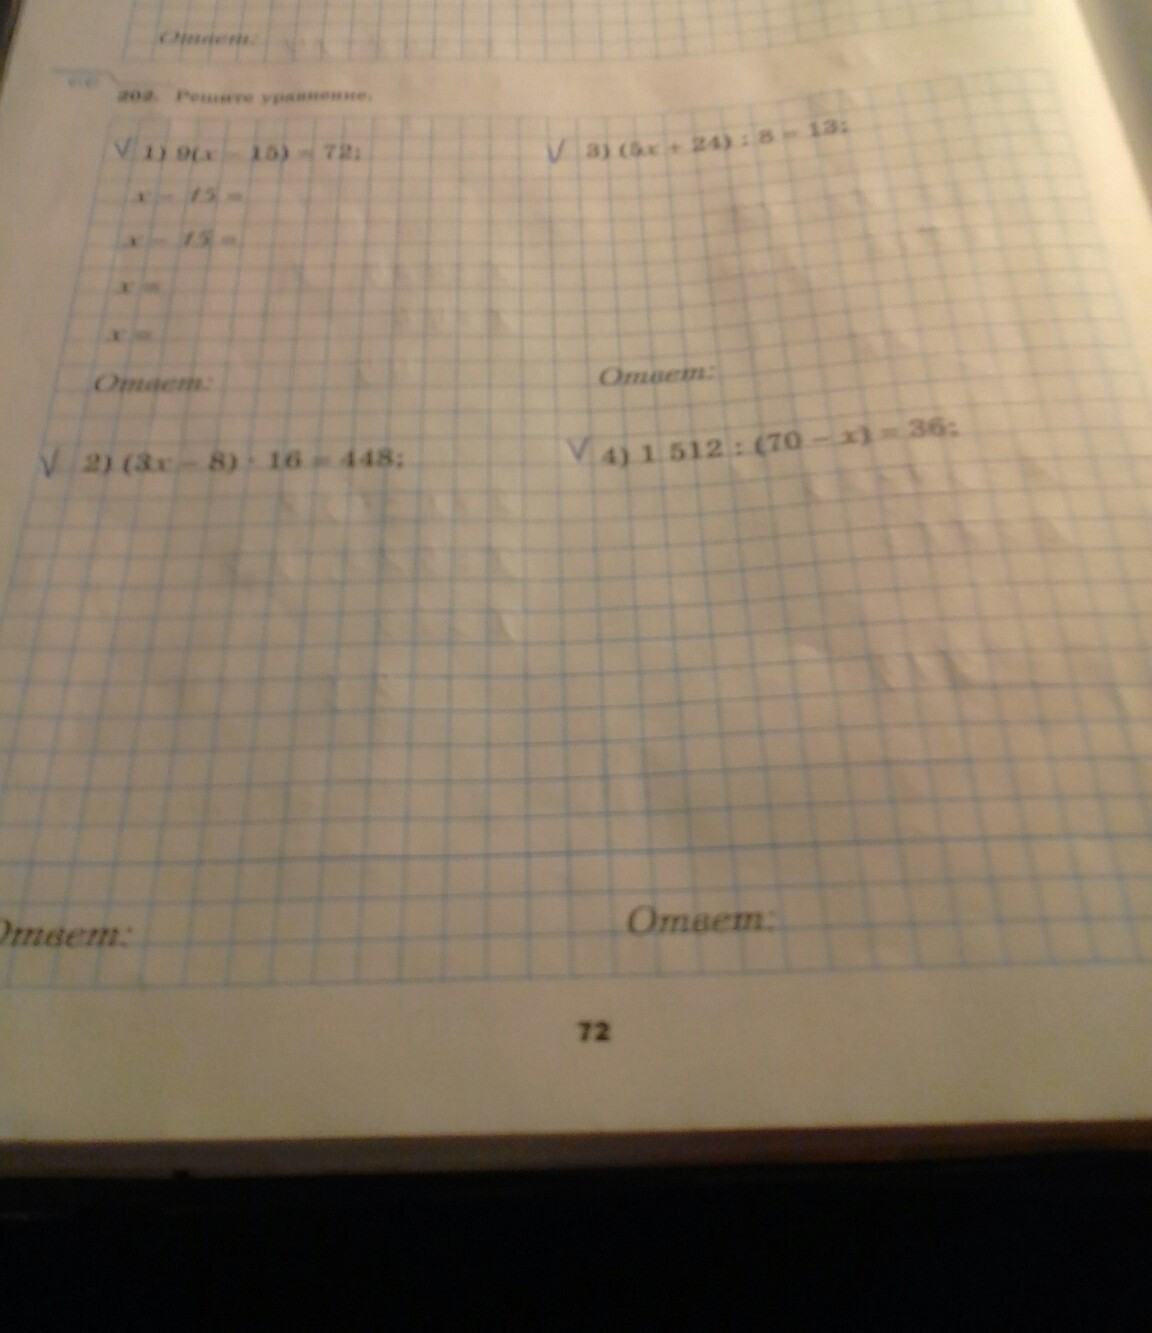 Ответ:
202. Решите уравнение.
1) 9(x − 15) = 72;
x − 15 =
x − 15 =
x =
x =
Ответ:
3) (5x + 24) : 8 = 13;
Ответ:
2) (3x − 8) · 16 = 448;
Ответ:
4) 1 512 : (70 − x) = 36;
Ответ:
72